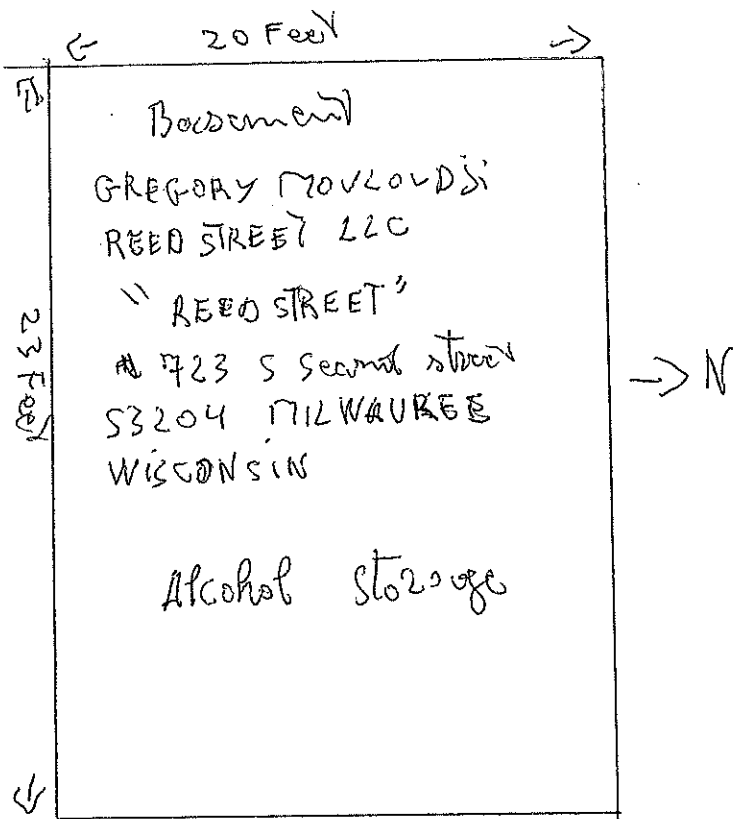 20 Feet
Basement
GREGORY MOULOUDJi
REED STREET LLC
"REED STREET"
723 S Second street
53204 MILWAUKEE
WISCONSIN
23 Feet
→ N
Alcohol Storage